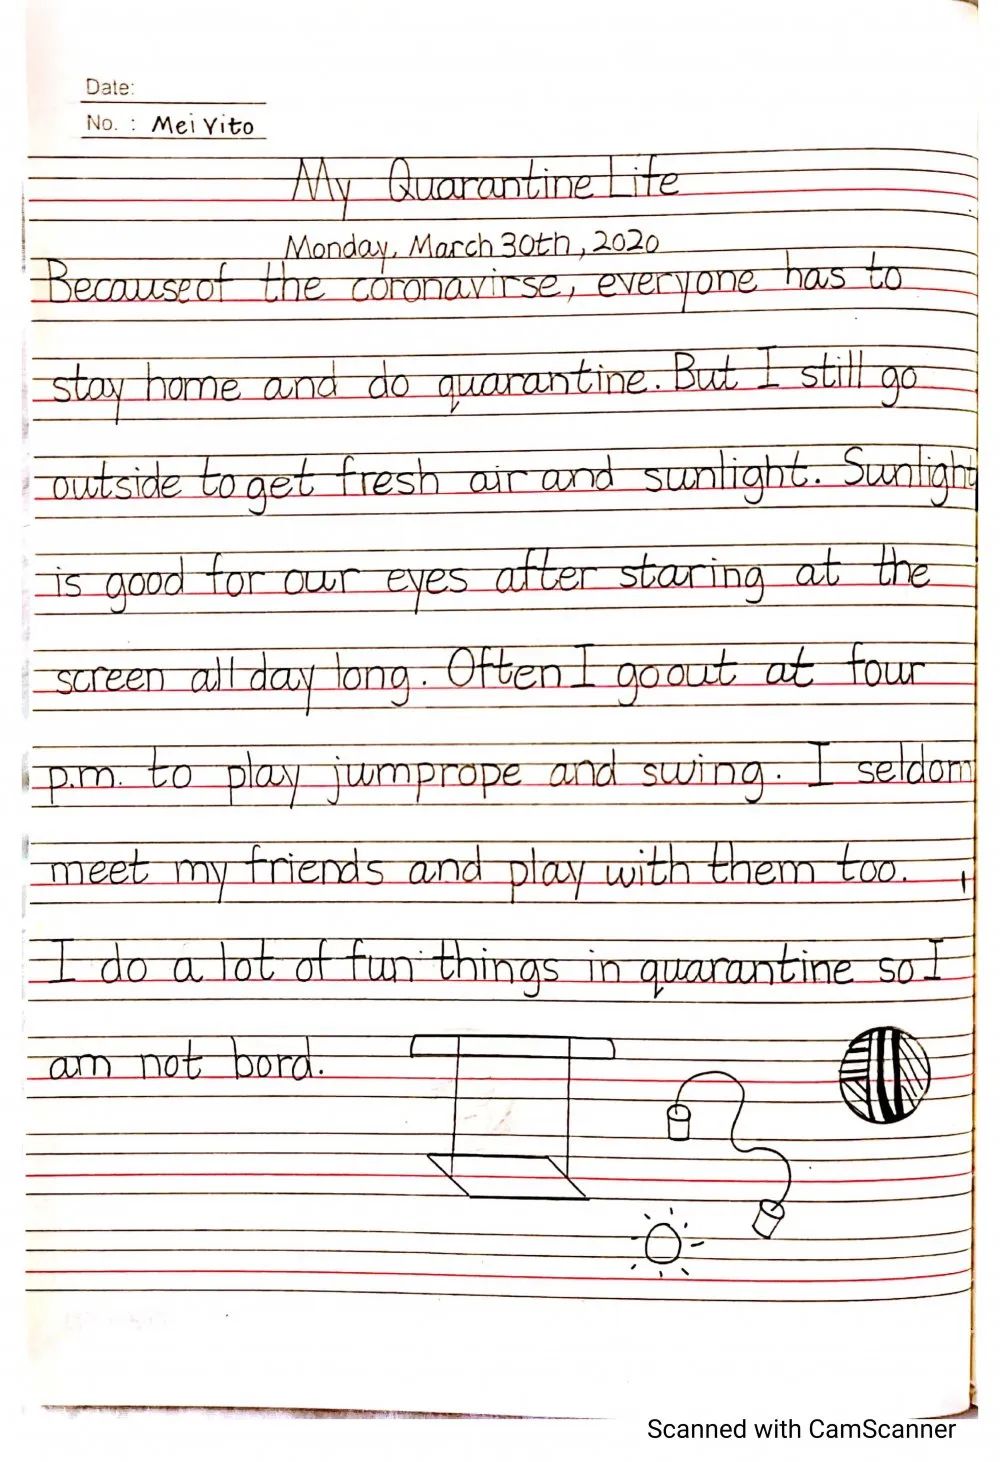 Date:
No. : Mei Vito
My Quarantine Life
Monday, March 30th, 2020
Because of the coronavirse, everyone has to
stay home and do quarantine. But I still go
outside to get fresh air and sunlight. Sunlight
is good for our eyes after staring at the
screen all day long. Often I go out at four
p.m. to play jumprope and swing. I seldom
meet my friends and play with them too.
I do a lot of fun things in quarantine so I
am not bord.
Scanned with CamScanner